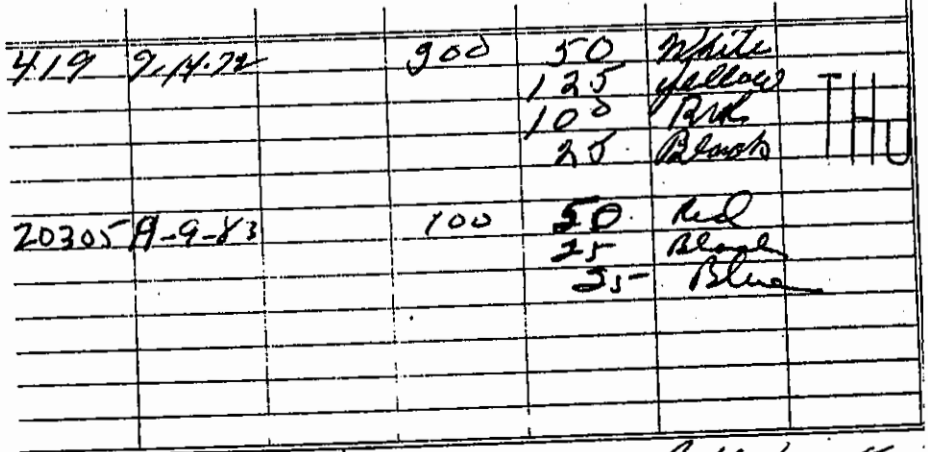 419 9-14-72 300 50 White
125 yellow
100 Brn
25 Black
THU
20305 A-9-83 100 50 Red
25 Black
25 Blue